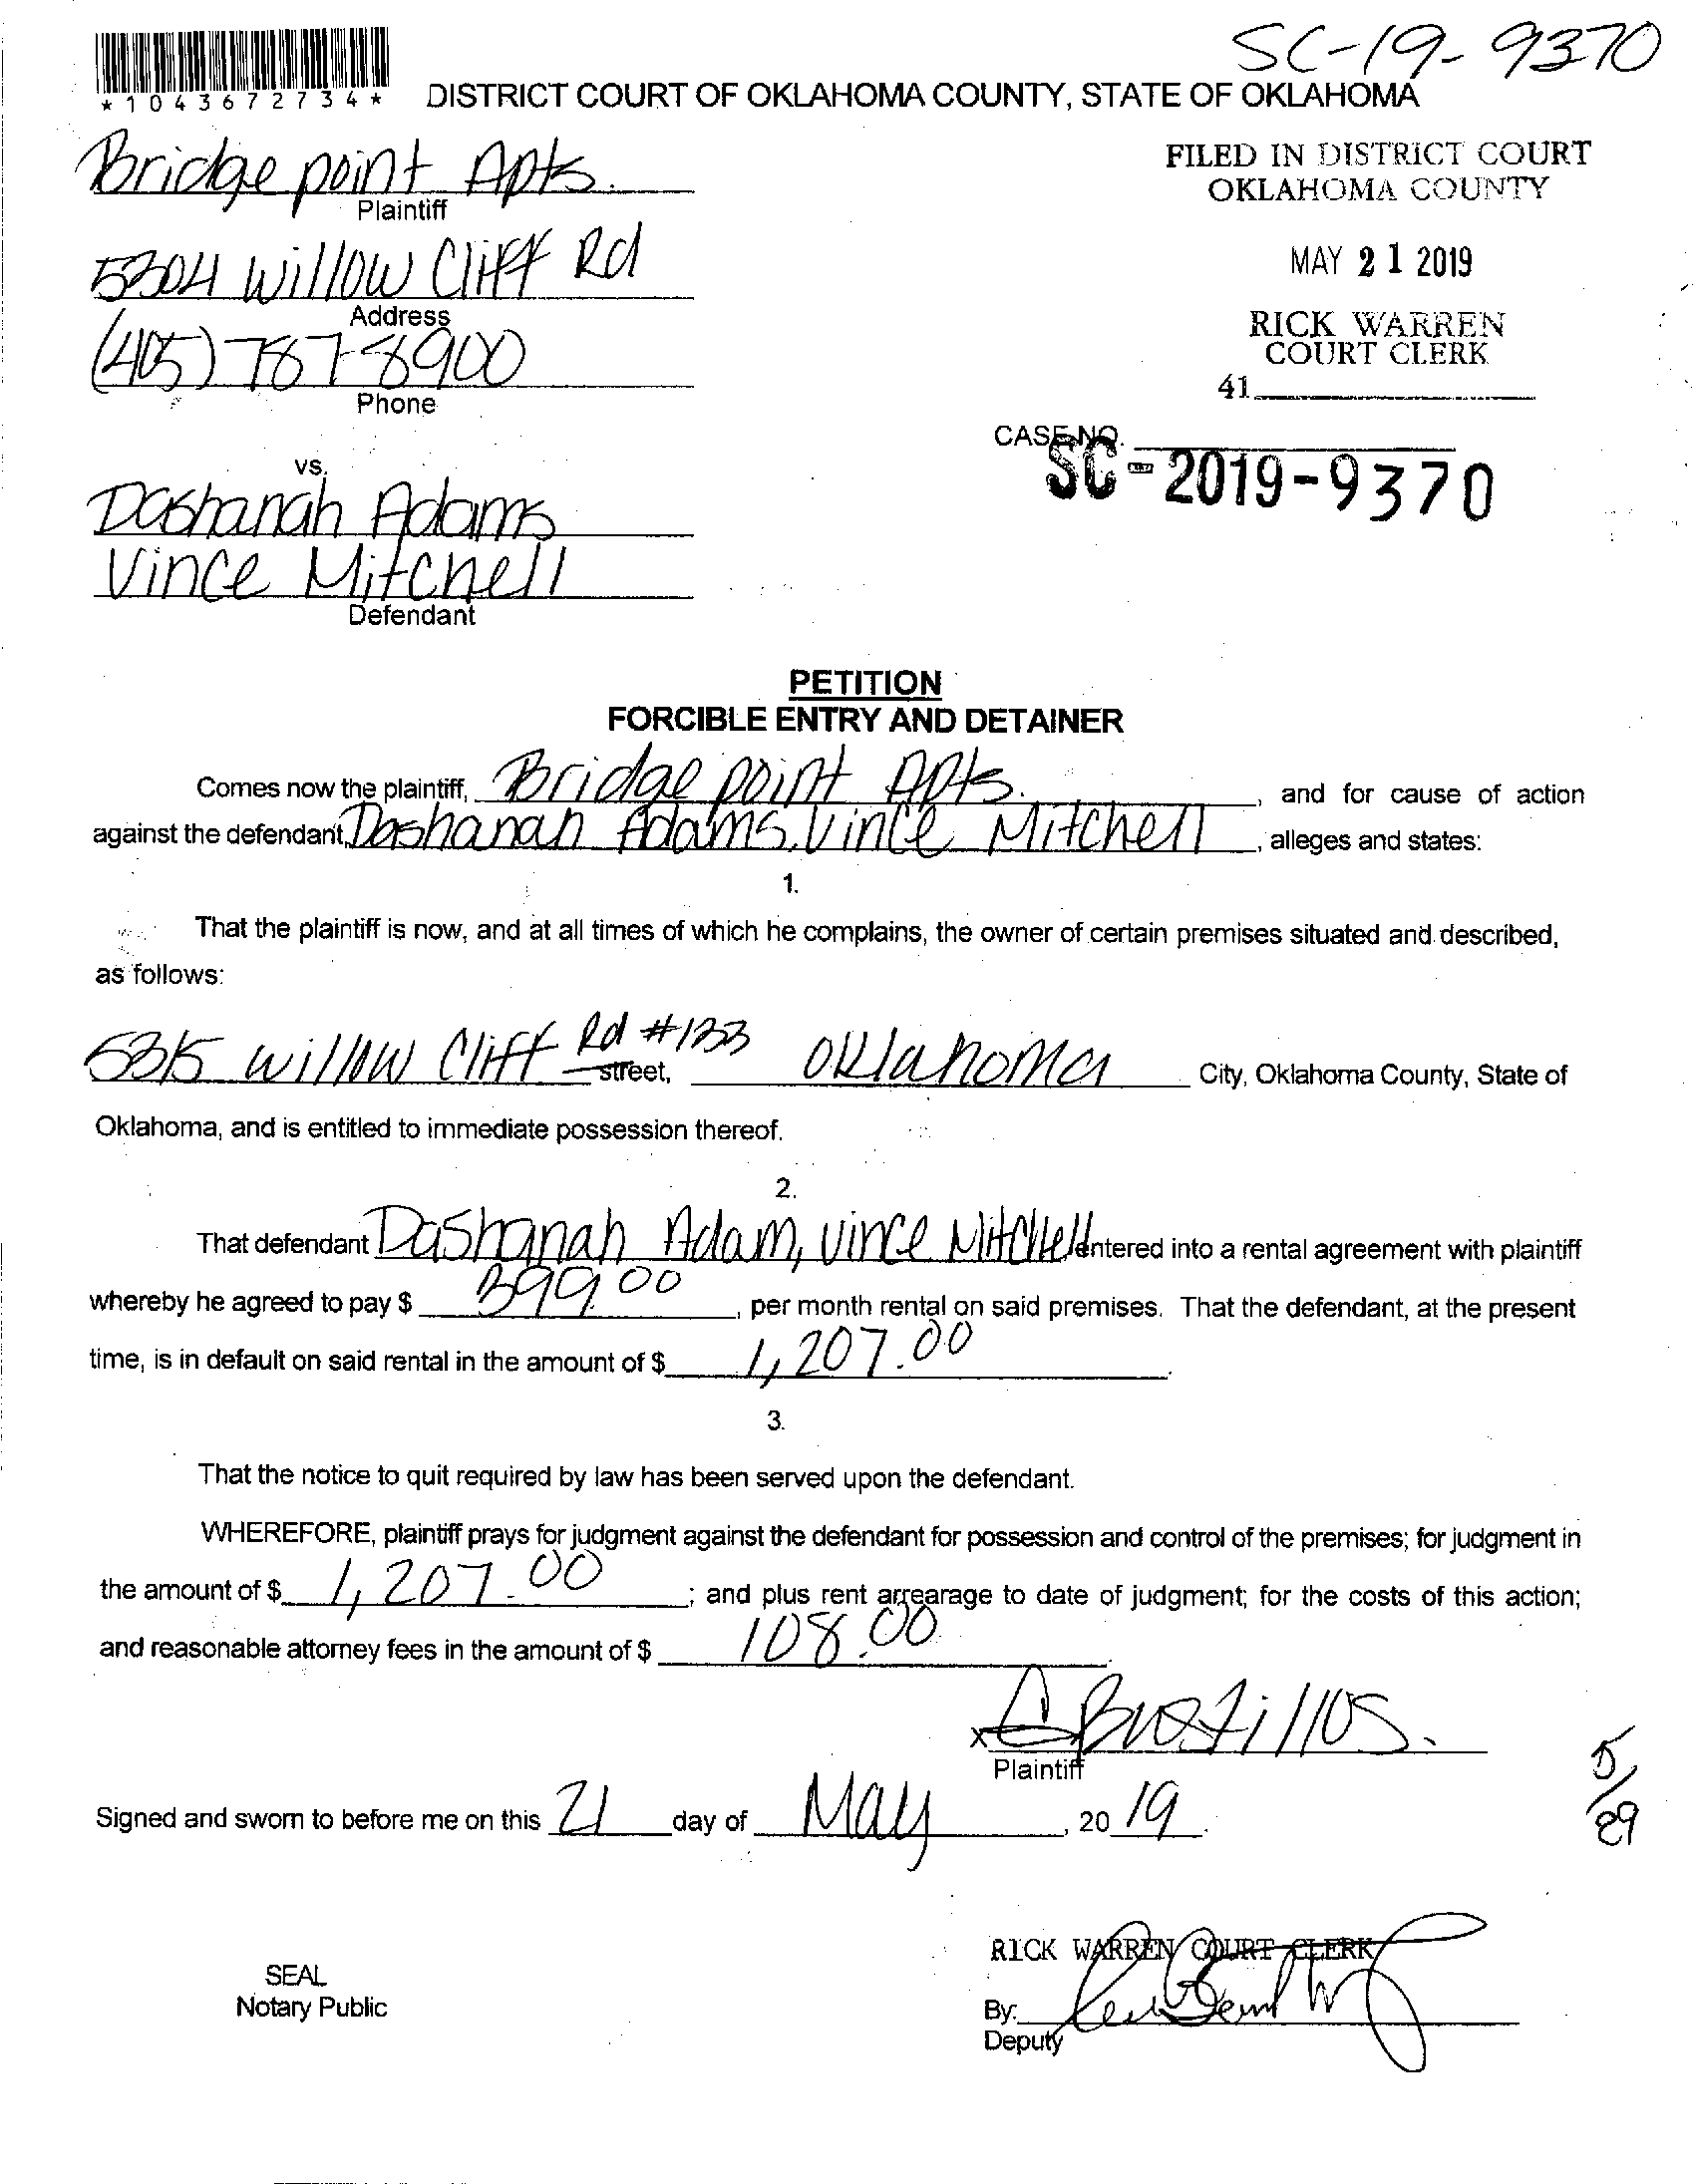 SC-19-9370
*1043672734*
DISTRICT COURT OF OKLAHOMA COUNTY, STATE OF OKLAHOMA
Bridge point Apts.
Plaintiff
FILED IN DISTRICT COURT
OKLAHOMA COUNTY
5304 Willow Cliff Rd
Address
MAY 21 2019
(405) 787-8900
Phone
RICK WARREN
COURT CLERK
41
CASE NO.
SC-2019-9370
vs.
Dashanah Adams
Vince Mitchell
Defendant
PETITION
FORCIBLE ENTRY AND DETAINER
Comes now the plaintiff, Bridge point Apts. , and for cause of action
against the defendant, Dashanah Adams, Vince Mitchell , alleges and states:
1.
That the plaintiff is now, and at all times of which he complains, the owner of certain premises situated and described,
as follows:
5315 Willow Cliff Rd #133 street, Oklahoma City, Oklahoma County, State of
Oklahoma, and is entitled to immediate possession thereof.
2.
That defendant Dashanah Adam, Vince Mitchell entered into a rental agreement with plaintiff
whereby he agreed to pay $ 399.00 , per month rental on said premises. That the defendant, at the present
time, is in default on said rental in the amount of $ 1,207.00 .
3.
That the notice to quit required by law has been served upon the defendant.
WHEREFORE, plaintiff prays for judgment against the defendant for possession and control of the premises; for judgment in
the amount of $ 1,207.00 ; and plus rent arrearage to date of judgment; for the costs of this action;
and reasonable attorney fees in the amount of $ 108.00
x C Bustillos.
Plaintiff
5/29
Signed and sworn to before me on this 21 day of May , 20 19 .
RICK WARREN COURT CLERK
SEAL
Notary Public
By:
Deputy